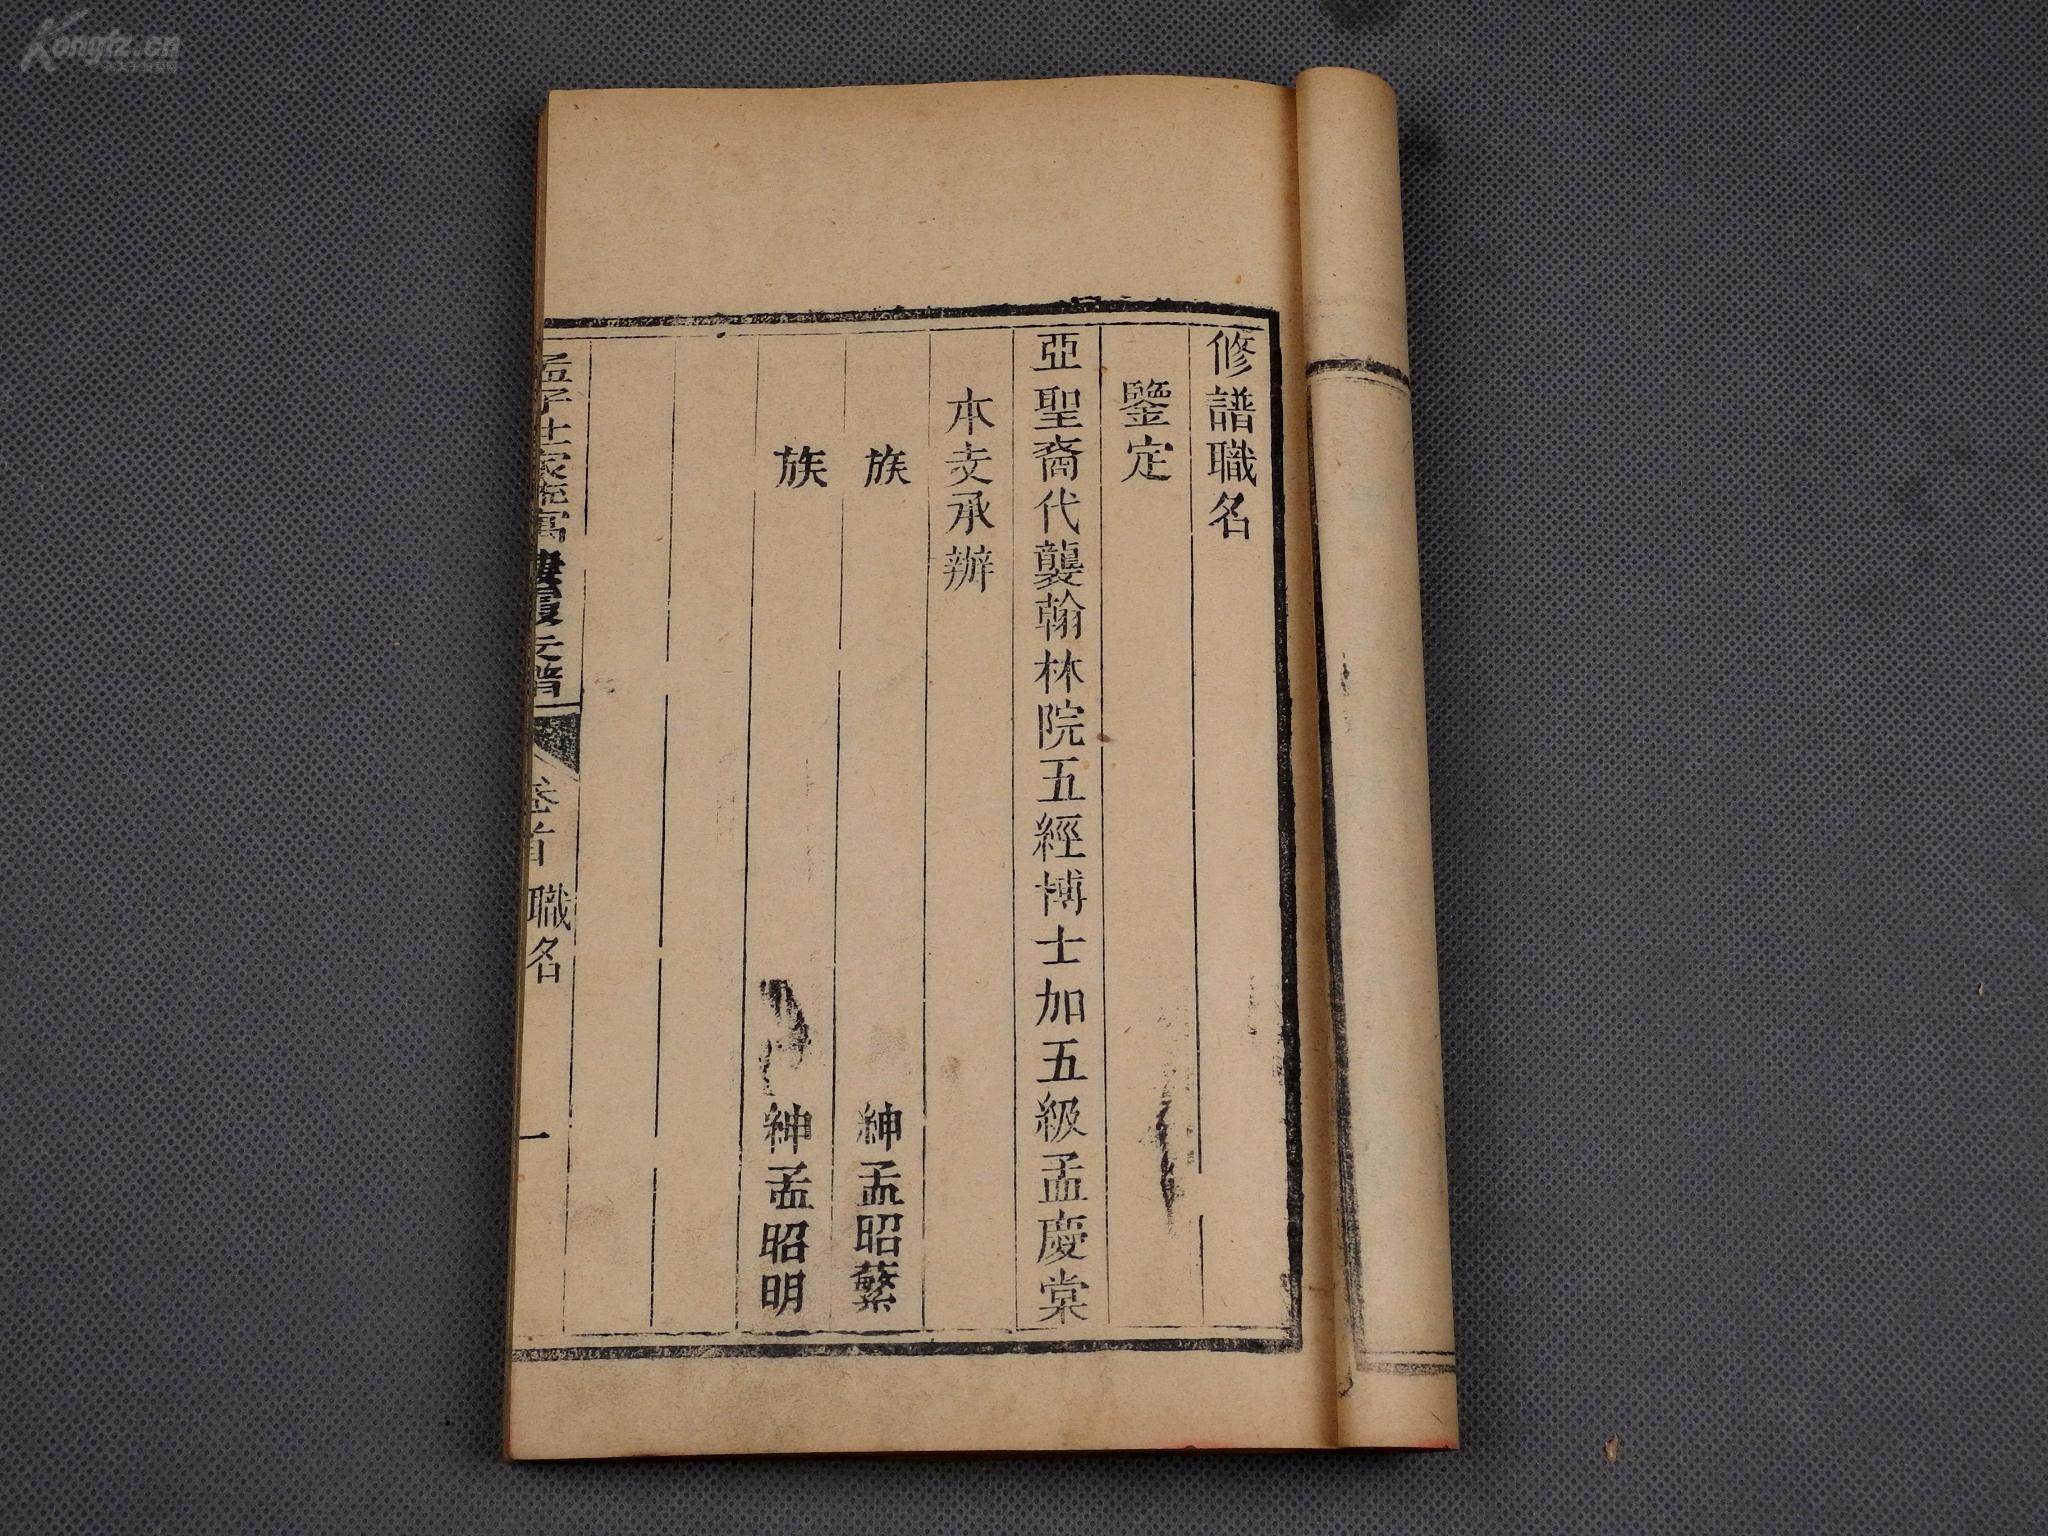 Kongfz.cn
修譜職名
鑒定
亞聖裔代襲翰林院五經博士加五級孟慶棠
本支承辦
族 紳孟昭蘩
族 紳孟昭明
孟子世家流寓棲霞支譜 卷首 職名 一